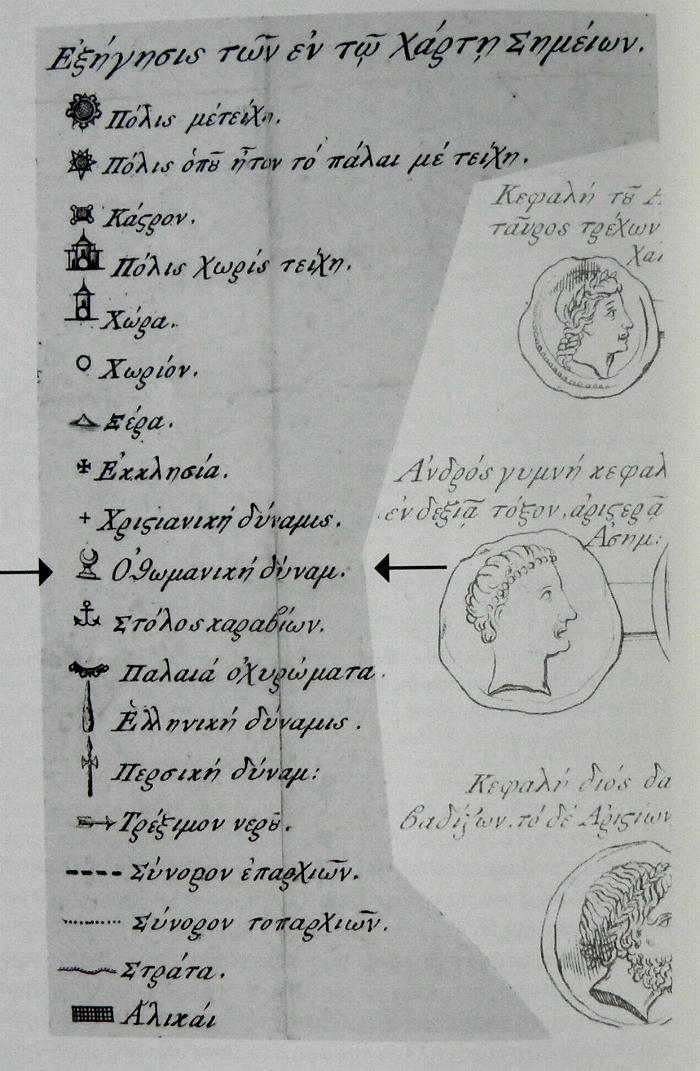 Ἐξήγησις τῶν ἐν τῷ Χάρτῃ Σημείων.
Πόλις μέτείχη.
Πόλις ὁπȣ͂ ἦτον τό πάλαι μέ τείχη.
Κάϛρον.
Πόλις Χωρίς τείχη.
Χώρα.
Χωρίον.
Ξέρα.
Ἐκκλησία.
Χριϛιανική δύναμις.
Ὀθωμανική δύναμ.
Στόλος καραβίων.
Παλαιά ὀχυρώματα.
Ἑλληνική δύναμις.
Περσική δύναμ:
Τρέξιμον νερȣ͂.
Σύνορον ἐπαρχιῶν.
Σύνορον τοπαρχιῶν.
Στράτα.
Ἁλικαί
Κεφαλή τȣ͂ Α
ταῦρος τρέχων
Χαι
Ἀνδρός γυμνή κεφαλ
ἐν δεξιᾷ τόξον, ἀριϛερᾷ
Ἀσημ:
Κεφαλή διός δα
βαδίζων. τό δέ Ἀριϛίων